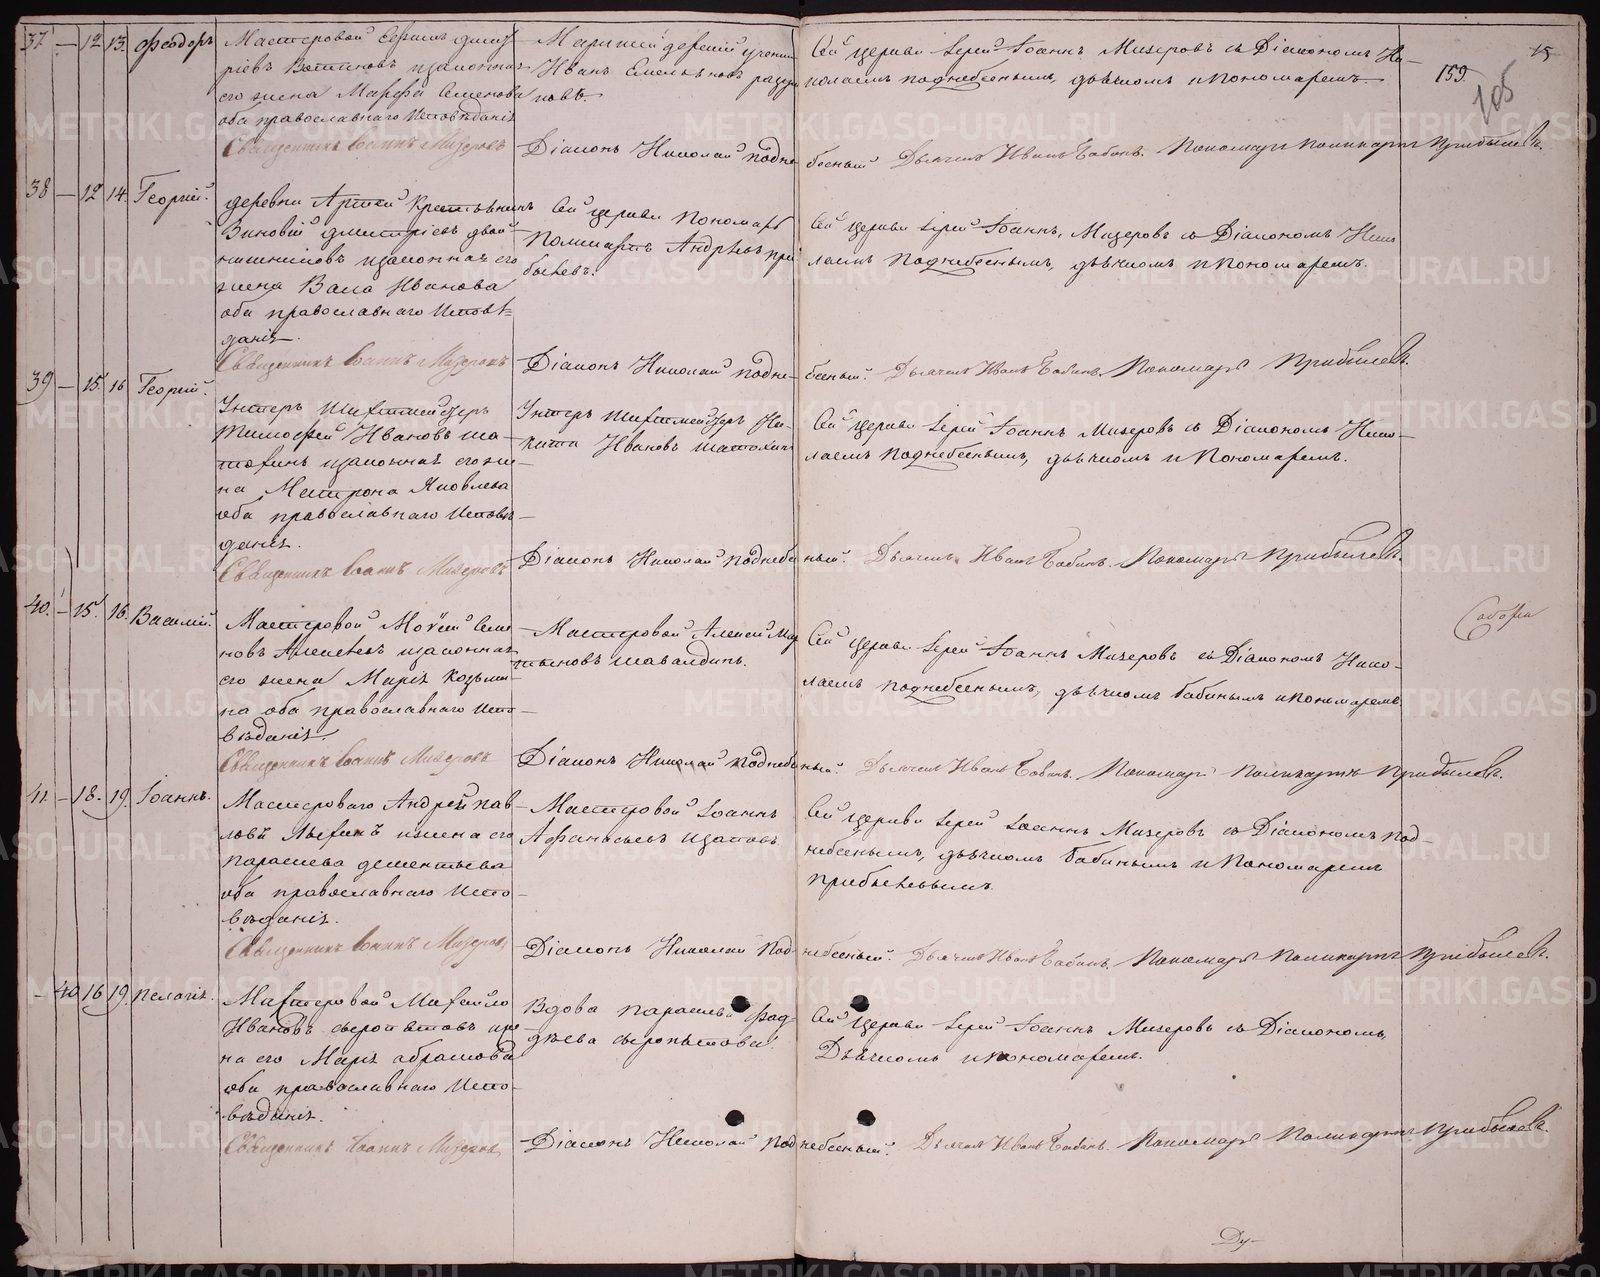 37 — 12 13. Феодоръ
Мастеровой
его жена Марфа Семенова
оба православнаго Исповѣданія
Иванъ Емельяновъ
Сей церкви Іерей Іоаннъ Мизеровъ съ Діакономъ Ни-
колаемъ Поднебеснымъ, дьячкомъ и Пономаремъ
159.
105
15
Священникъ Іоаннъ Мизеровъ Діаконъ Николай Поднебесный. Дьячекъ Иванъ Бабинъ. Пономарь Поликарпъ Прибылевъ.
38 — 12 14. Георгій.
деревни Артей Крестьянинъ
Зиновій Дмитріевъ
и законная его
жена Васса Иванова
оба православнаго Исповѣ=
данія.
Сей церкви Пономарь
Поликарпъ Андреевъ При
былевъ.
Сей церкви Іерей Іоаннъ Мизеровъ съ Діакономъ Нико
лаемъ Поднебеснымъ, дьячкомъ и Пономаремъ.
Священникъ Іоаннъ Мизеровъ Діаконъ Николай Подне-бесный. Дьячекъ Иванъ Бабинъ. Пономарь Прибылевъ.
39 — 15. 16 Георгій.
Унтеръ Шихтмейстеръ
Тимофей Ивановъ Ша-
тохинъ и законная его же-
на Матрона Яковлева
оба православнаго Исповѣ-
данія.
Унтеръ Шихтмейстеръ Ни-
кита Ивановъ Шатохинъ
Сей церкви Іерей Іоаннъ Мизеровъ съ Діакономъ Нико-
лаемъ Поднебеснымъ, дьячкомъ и Пономаремъ.
Священникъ Іоаннъ Мизеровъ Діаконъ Николай Поднебесный. Дьячекъ Иванъ Бабинъ. Пономарь Прибылевъ.
40. — 15. 16. Василій.
Мастеровой Моѵсей Семе
новъ и законная
его жена Марія Козьми-
на оба православнаго Испо-
вѣданія.
Мастеровой Алексей
Сей церкви Іерей Іоаннъ Мизеровъ съ Діакономъ Нико-
лаемъ Поднебеснымъ, дьячкомъ Бабинымъ и Пономаремъ
Священникъ Іоаннъ Мизеровъ Діаконъ Николай Поднебесный. Дьячекъ Иванъ Бабинъ. Пономарь Поликарпъ Прибылевъ.
41. — 18. 19. Іоаннъ.
Мастероваго Андрей Пав
ловъ и жена его
Параскева Дементьева
оба православнаго Испо-
вѣданія.
Мастеровой Іоаннъ
Афанасьевъ
Сей церкви Іерей Іоаннъ Мизеровъ съ Діакономъ Под-
небеснымъ, дьячкомъ Бабинымъ и Пономаремъ
Прибылевымъ.
Священникъ Іоаннъ Мизеровъ Діаконъ Николай Под-небесный. Дьячекъ Иванъ Бабинъ. Пономарь Поликарпъ Прибылевъ.
— 40 16 19. Пелагія.
Мастеровой Михайло
Ивановъ Сыропятовъ и же
на его Марія Абрамова
оба православнаго Испо-
вѣданія.
Вдова Параскева Фад-
дѣева Сыропятова.
Сей церкви Іерей Іоаннъ Мизеровъ съ Діакономъ,
Дьячкомъ и Пономаремъ.
Священникъ Іоаннъ Мизеровъ Діаконъ Николай Поднебесный. Дьячекъ Иванъ Бабинъ. Пономарь Поликарпъ Прибылевъ.
Ду-
METRIKI.GASO-URAL.RU